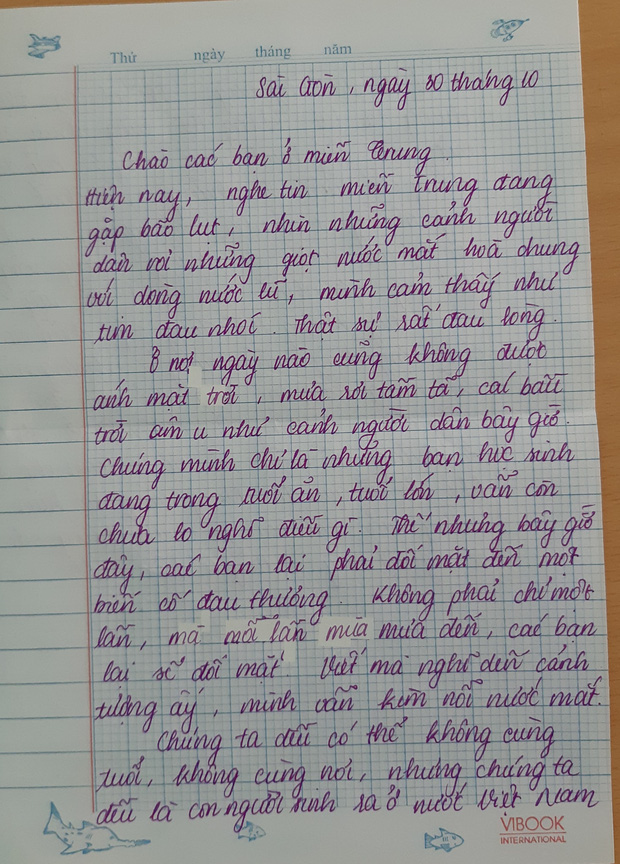 Thứ ngày tháng năm
Sài Gòn, ngày 30 tháng 10
Chào các bạn ở miền Trung.
Hiện nay, nghe tin miền trung đang
gặp bão lụt, nhìn những cảnh người
dân với những giọt nước mắt hoà chung
với dòng nước lũ, mình cảm thấy như
tim đau nhói. Thật sự rất đau lòng.
Ở nơi ngày nào cũng không được
ánh mặt trời, mưa rơi tầm tã, cái bầu
trời âm u như cảnh người dân bây giờ.
Chúng mình chỉ là những bạn học sinh
đang trong tuổi ăn, tuổi lớn, vẫn còn
chưa lo nghĩ điều gì. Thế nhưng bây giờ
đây, các bạn lại phải đối mặt đến một
biến cố đau thương. Không phải chỉ một
lần, mà mỗi lần mùa mưa đến, các bạn
lại sẽ đối mặt. Viết mà nghĩ đến cảnh
tượng ấy, mình vẫn kìm nổi nước mắt.
Chúng ta đều có thể không cùng
tuổi, không cùng nơi, nhưng chúng ta
đều là con người sinh ra ở nước Việt Nam
VIBOOK
INTERNATIONAL